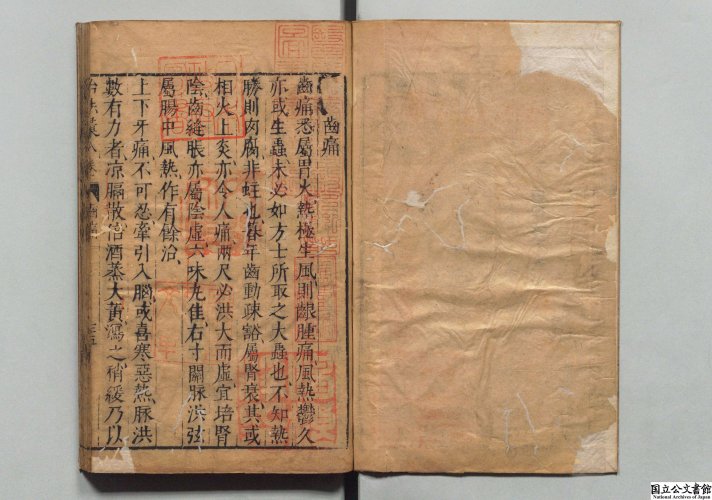 齒痛
齒痛悉屬胃火、熱極生風則齦腫痛、風熱鬱久
亦或生蟲、未必如方士所取之大蟲也、不知熱
勝則肉腐、非蛀也、暮年齒動疎豁、屬腎衰、其或
相火上炎、亦令人痛、兩尺必洪大而虛、宜培腎
陰、齒縫脹亦屬陰虛、六味丸佳、右寸關脉洪弦
屬腸中風熱、作有餘治、
上下牙痛不可忍、牽引入腦、或喜寒惡熱、脉洪
數有力者、凉膈散倍酒蒸大黃瀉之、稍緩乃以
齒痛
国立公文書館
National Archives of Japan